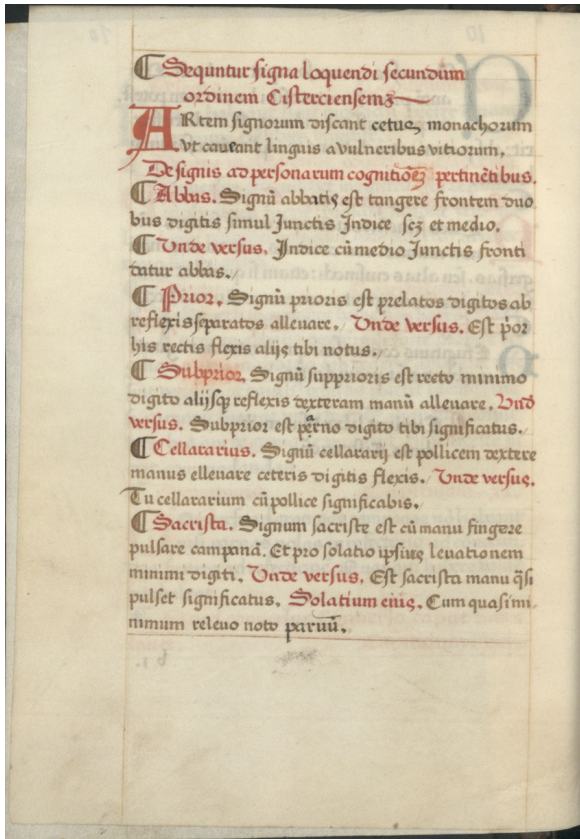 ¶ Sequntur signa loquendi secundum
ordinem Cisterciensemꝫ
ARtem signorum discant cetuꝫ monachorum
Vt caueant linguis a vulneribus vitiorum.
De signis ad personarum cognitiōeꝫ pertinētibus.
¶ Abbas. Signū abbatis est tangere frontem duo
bus digitis simul Junctis Indice scꝫ et medio.
¶ Vnde versus. Indice cū medio Junctis fronti
datur abbas.
¶ Prior. Signū prioris est prelatos digitos ab
reflexis separatos alleuare. Vnde versus. Est p̄or
his rectis flexis alijs tibi notus.
¶ Subprior. Signū supprioris est recto minimo
digito alijsqꝫ reflexis dexteram manū alleuare. Vnd
versus. Subprior est digito tibi significatus.
¶ Cellararius. Signū cellararij est pollicem dextere
manus elleuare ceteris digitis flexis. Vnde versus.
Tu cellararium cū pollice significabis.
¶ Sacrista. Signum sacriste est cū manu fingere
pulsare campanā. Et pro solatio ipsius leuationem
minimi digiti. Vnde versus. Est sacrista manu q̄si
pulset significatus. Solatium eius. Cum quasi mi-
nimum releuo noto paruū.